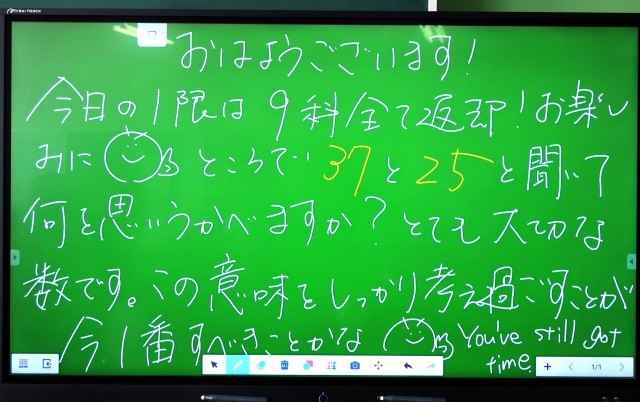 おはようございます!
今日の1限は9科全て返却!お楽し
みに ところで、37と25と聞いて
何を思いうかべますか?とても大切な
数です。この意味をしっかり考え過ごすことが
今1番すべきことかな You've still got
time.
1/1